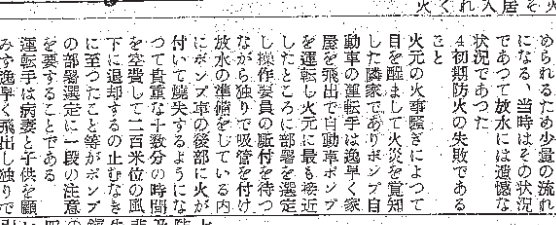 められるため少量の流れ
になる、当時はその状況
であつて放水には遺憾な
状況であつた
4初期防火の失敗である
こと
火元の火事騒ぎによつて
目を醒まして火災を覚知
した隣家でありポンプ自
動車の運転手は逸早く家
屋を飛出で自動車ポンプ
を運転し火元に最も接近
したところに部署を選定
し操作要員の駈付を待つ
ながら独りで吸管を付け
放水の準備をしている内
にポンプ車の後部に火が
付いて焼失するようにな
つて貴重な十数分の時間
を空費して二百米位の風
下に退却するの止むなき
に至つたこと等がポンプ
の部署選定に一段の注意
を要することである
運転手は病妻と子供を顧
みず逸早く飛出し独りで